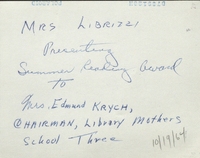 MRS LIBRIZZI
Presenting
Summer Reading Award
TO
Mrs. Edmund KRYCH,
CHAIRMAN, Library Mothers
School Three
10/19/64